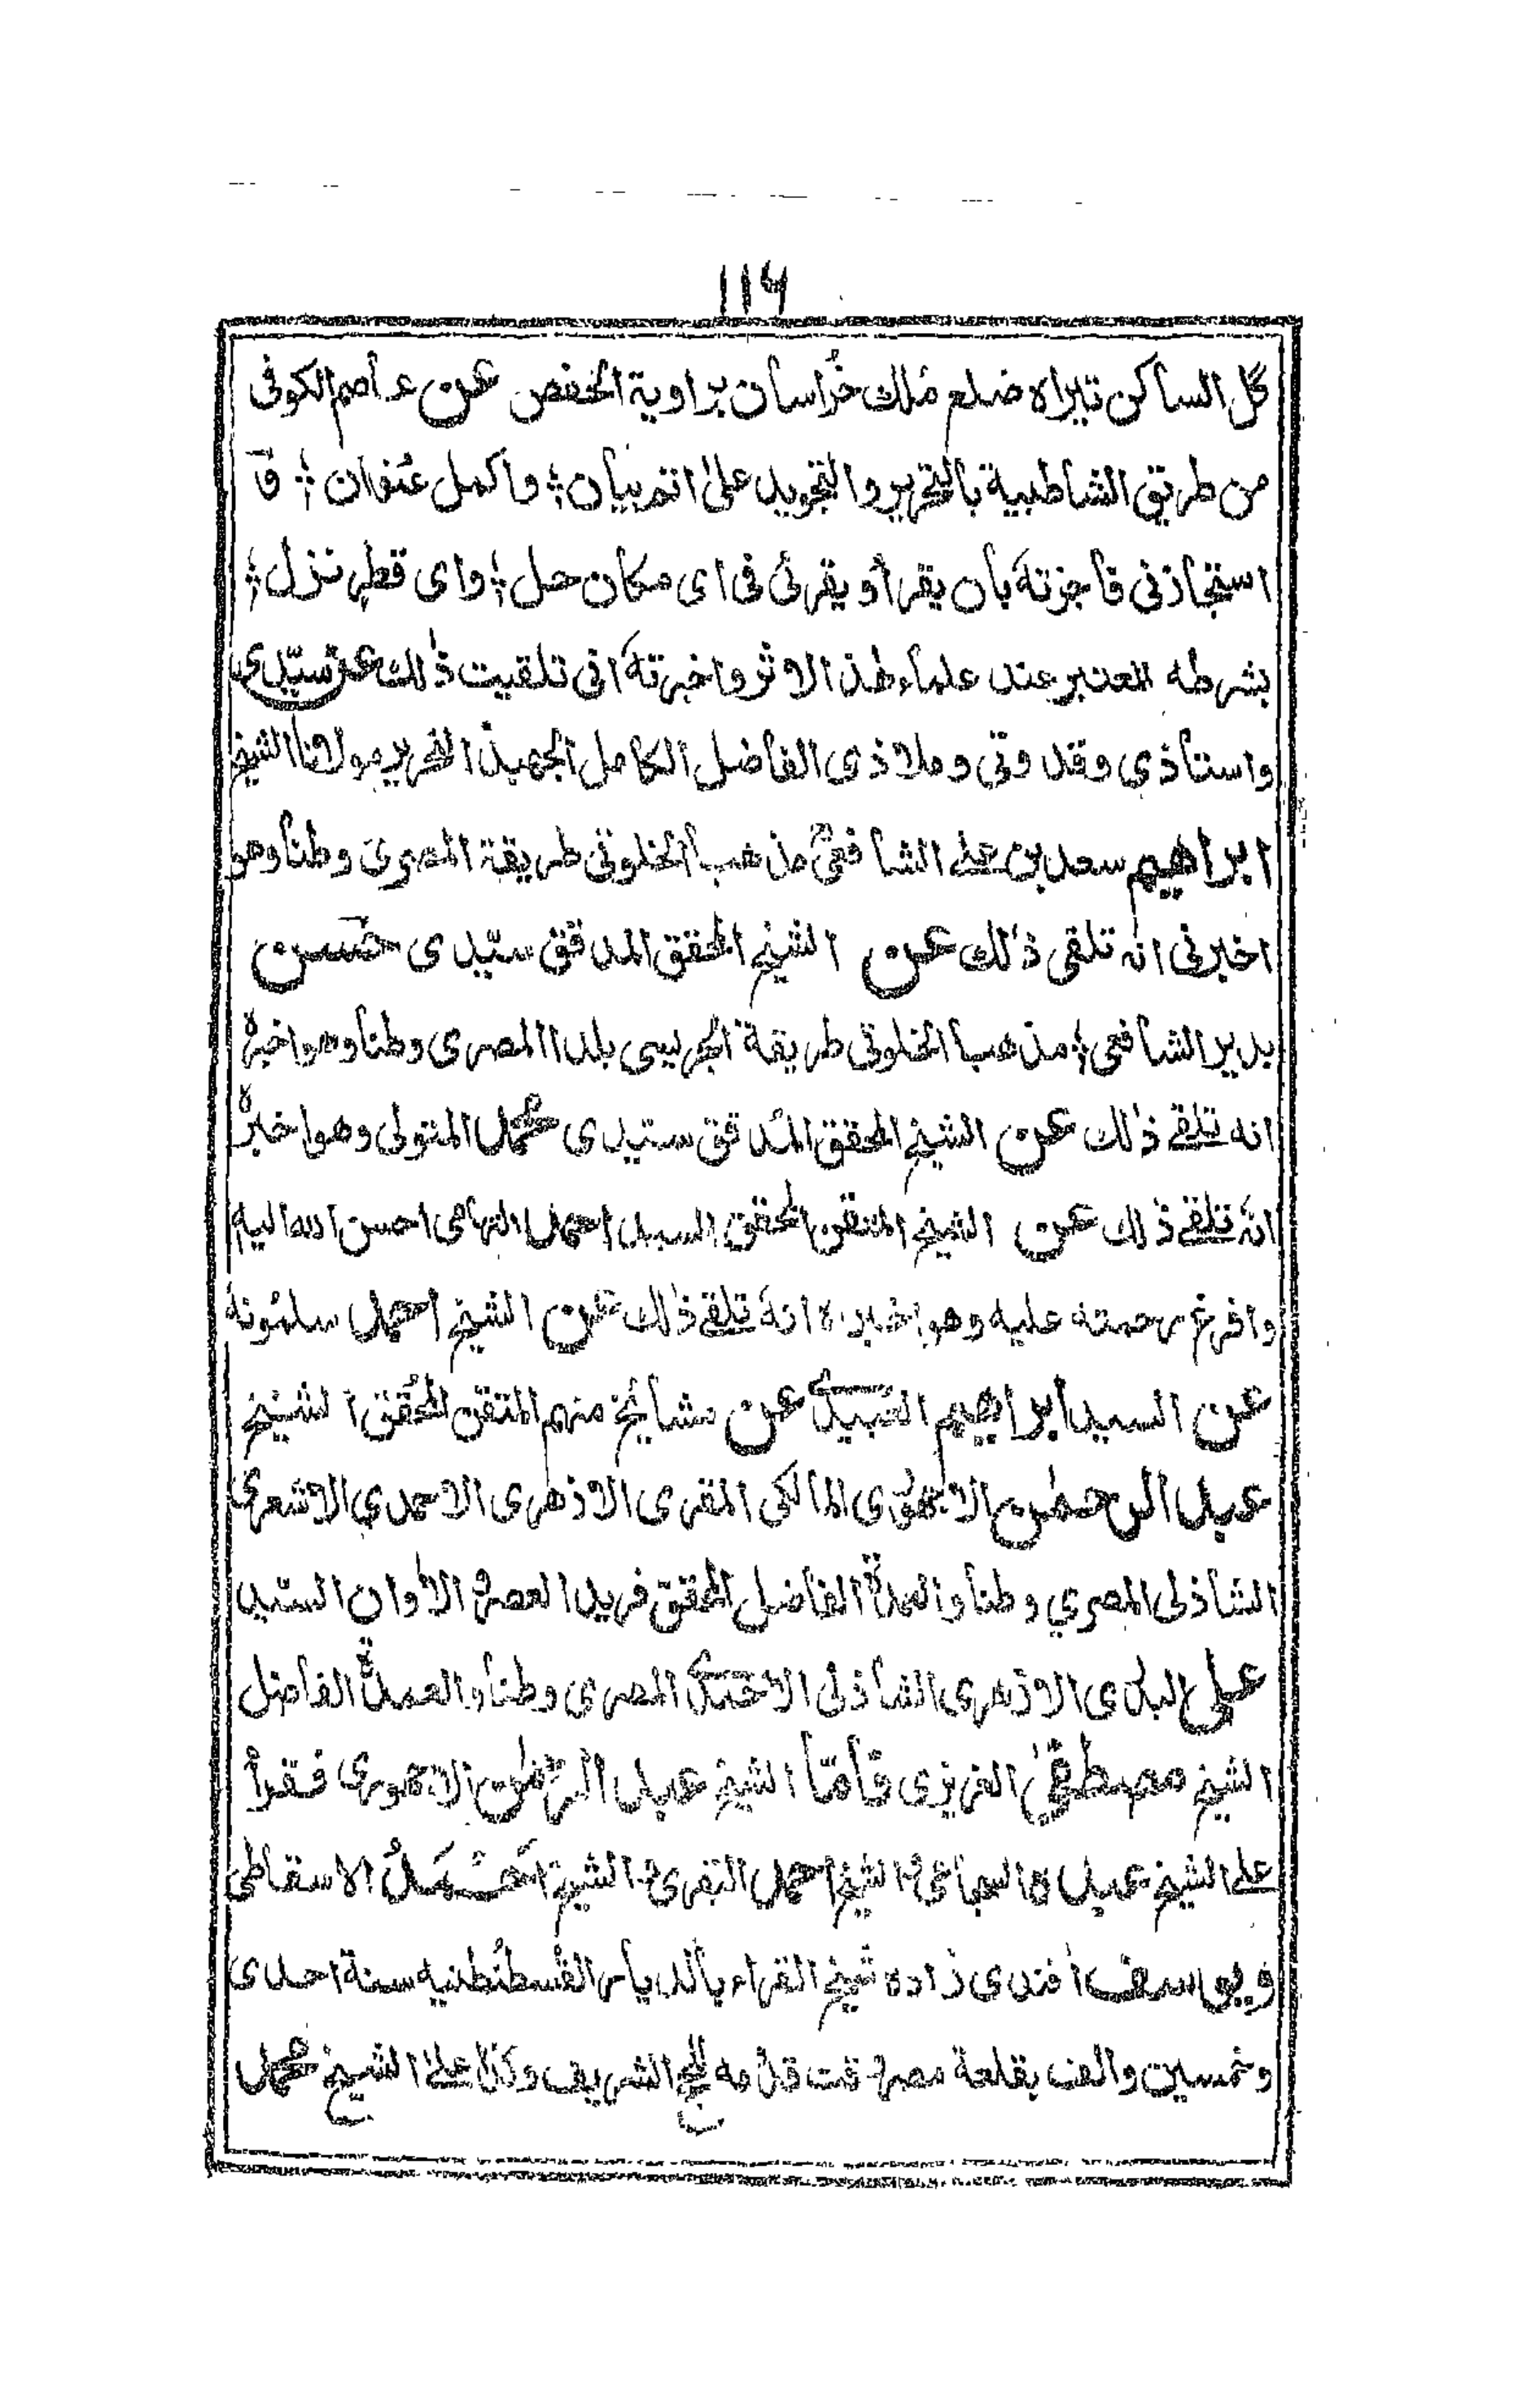 ١١٦
گل الساكن تيراه ضلع مُلك خُراسان براوية الحفص عن عاصم الكوفى
من طريق الشاطبية بالتحرير والتجويد على اتم بيان ؛ واكمل عنوان ؛ و
استجازنى فاجزته بان يقرأ و يقرئ فى اى مكان حل ؛ واى قطر نزل ؛
بشرطه المعتبر عند علماء هذا الاثر واخبرته انى تلقيت ذلك عن سيّدى
واستاذى وقدوتى وملاذى الفاضل الكامل الجهبذ النحرير مولانا الشيخ
ابراهيم سعد بن على الشافعى مذهبا الخلوتى طريقة المصرى وطنا وهو
اخبرنى انه تلقى ذلك عن الشيخ المحقق المدقق سيّدى حسن
بدير الشافعى ؛ مذهبا الخلوتى طريقة الجريسى بلدا المصرى وطنا وهو اخبره
انه تلقى ذلك عن الشيخ المحقق المدقق سيدى محمد المتولى وهو اخبره
انه تلقى ذلك عن الشيخ المتقن المحقق السيد احمد التهامى احسن الله اليه
وافرغ رحمته عليه وهو اخبره انه تلقى ذلك عن الشيخ احمد سلمونة
عن السيد ابراهيم العبيد عن مشائخ منهم المتقن المحقق الشيخ
عبد الرحمٰن الاجهورى المالكى المقرى الازهرى الاحمدى الاشعرى
الشاذلى المصرى وطنا والعمدة الفاضل المحقق فريد العصر و الاوان السيّد
على البدرى الازهرى الشاذلى الاحمدى المصرى وطنا والعمدة الفاضل
الشيخ مصطفى العزيزى فأمّا الشيخ عبد الرحمٰن الاجهورى فقرأ
على الشيخ عبده السجاعى و الشيخ احمد البقرى و الشيخ احمد الاسقاطى
ويوسف افندى زاده شيخ القراء بالديار القسطنطنيه سنة احدى
وخمسين والف بقلعة مصر وقت قدومه للحج الشريف وكذا على الشيخ محمد